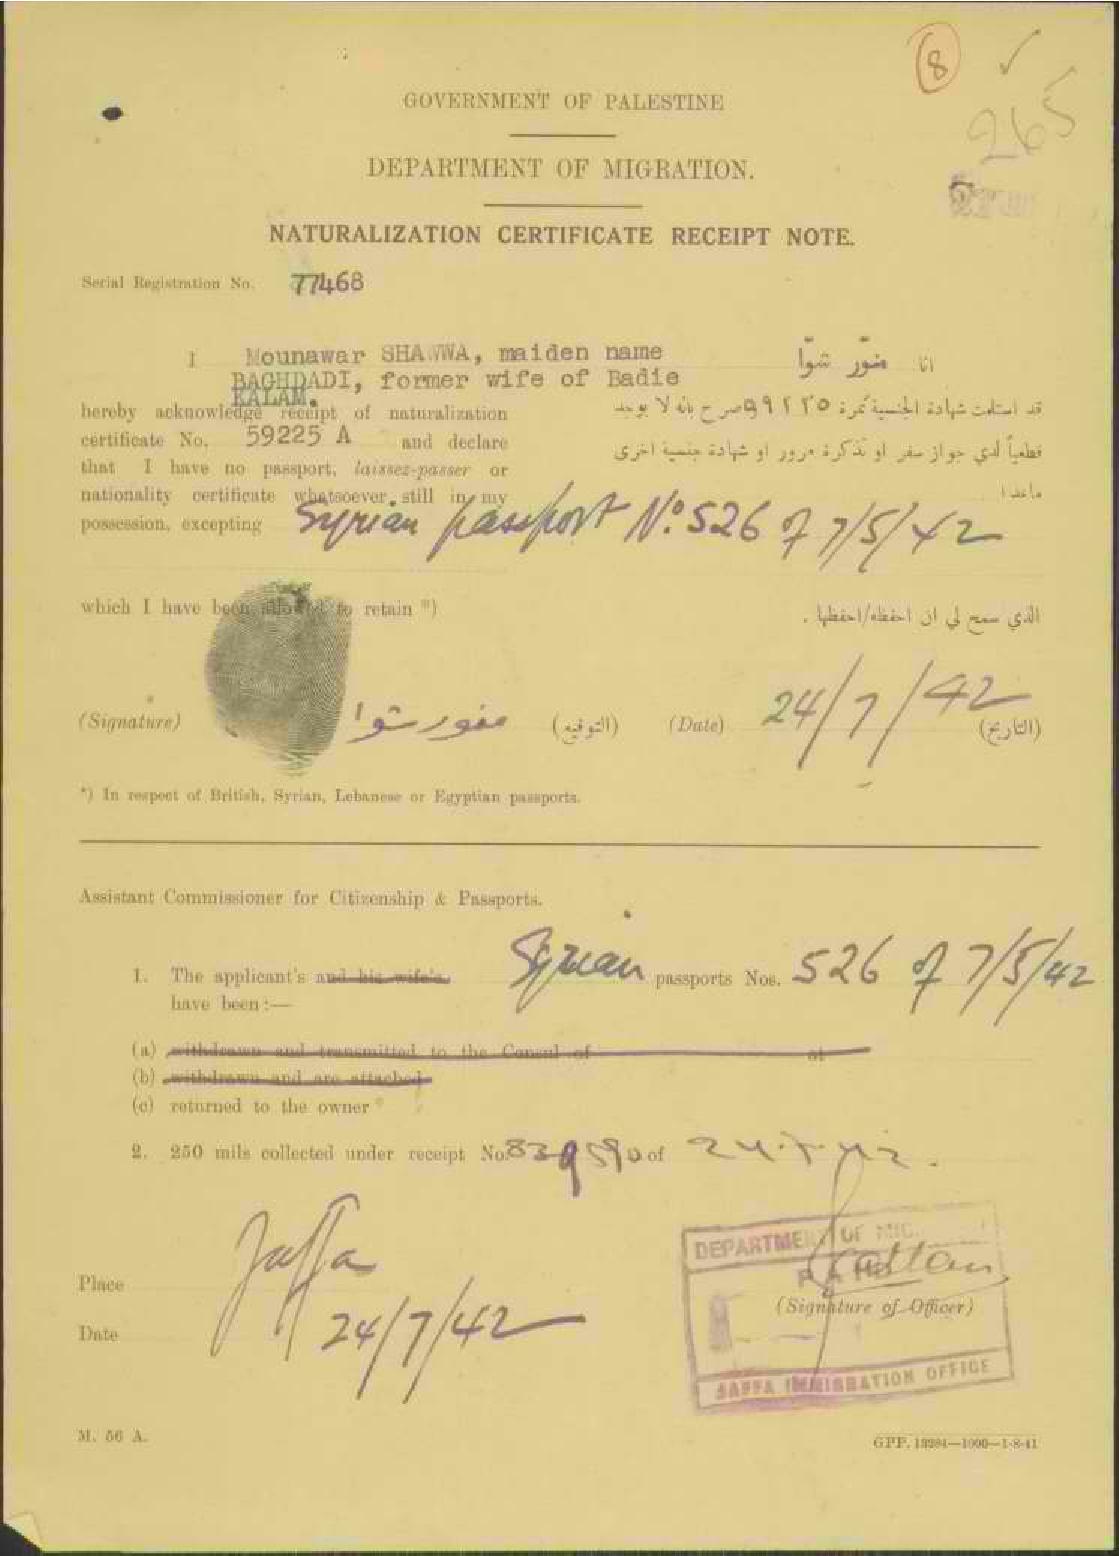 8
265
GOVERNMENT OF PALESTINE
DEPARTMENT OF MIGRATION.
NATURALIZATION CERTIFICATE RECEIPT NOTE.
Serial Registration No. 77468
I Mounawar SHAWWA, maiden name
BAGHDADI, former wife of Badie
KALAM.
انا منوّر شوّا
hereby acknowledge receipt of naturalization
certificate No. 59225 A and declare
that I have no passport, laissez-passer or
nationality certificate whatsoever still in my
possession, excepting Syrian passport No. 526 of 7/5/42
قد استلمت شهادة الجنسية نمرة ٥٩٢٢٥ صرح بانه لا يوجد
قطعياً لدي جواز سفر او تذكرة مرور او شهادة جنسية اخرى
ماعدا
which I have been allowed to retain *)
الذي سمح لي ان احفظه/احفظها .
(Signature) منور شوا (التوقيع) (Date) 24/7/42 (التاريخ)
*) In respect of British, Syrian, Lebanese or Egyptian passports.
Assistant Commissioner for Citizenship & Passports.
1. The applicant's and his wife's Syrian passports Nos. 526 of 7/5/42
have been:—
(a) withdrawn and transmitted to the Consul of at
(b) withdrawn and are attached
(c) returned to the owner *
2. 250 mils collected under receipt No. 839590 of 24.7.42.
Place Jaffa
Date 24/7/42
DEPARTMENT OF MIG
PAID
(Signature of Officer)
JAFFA IMMIGRATION OFFICE
M. 56 A.
GPP. 13284—1000—1-8-41